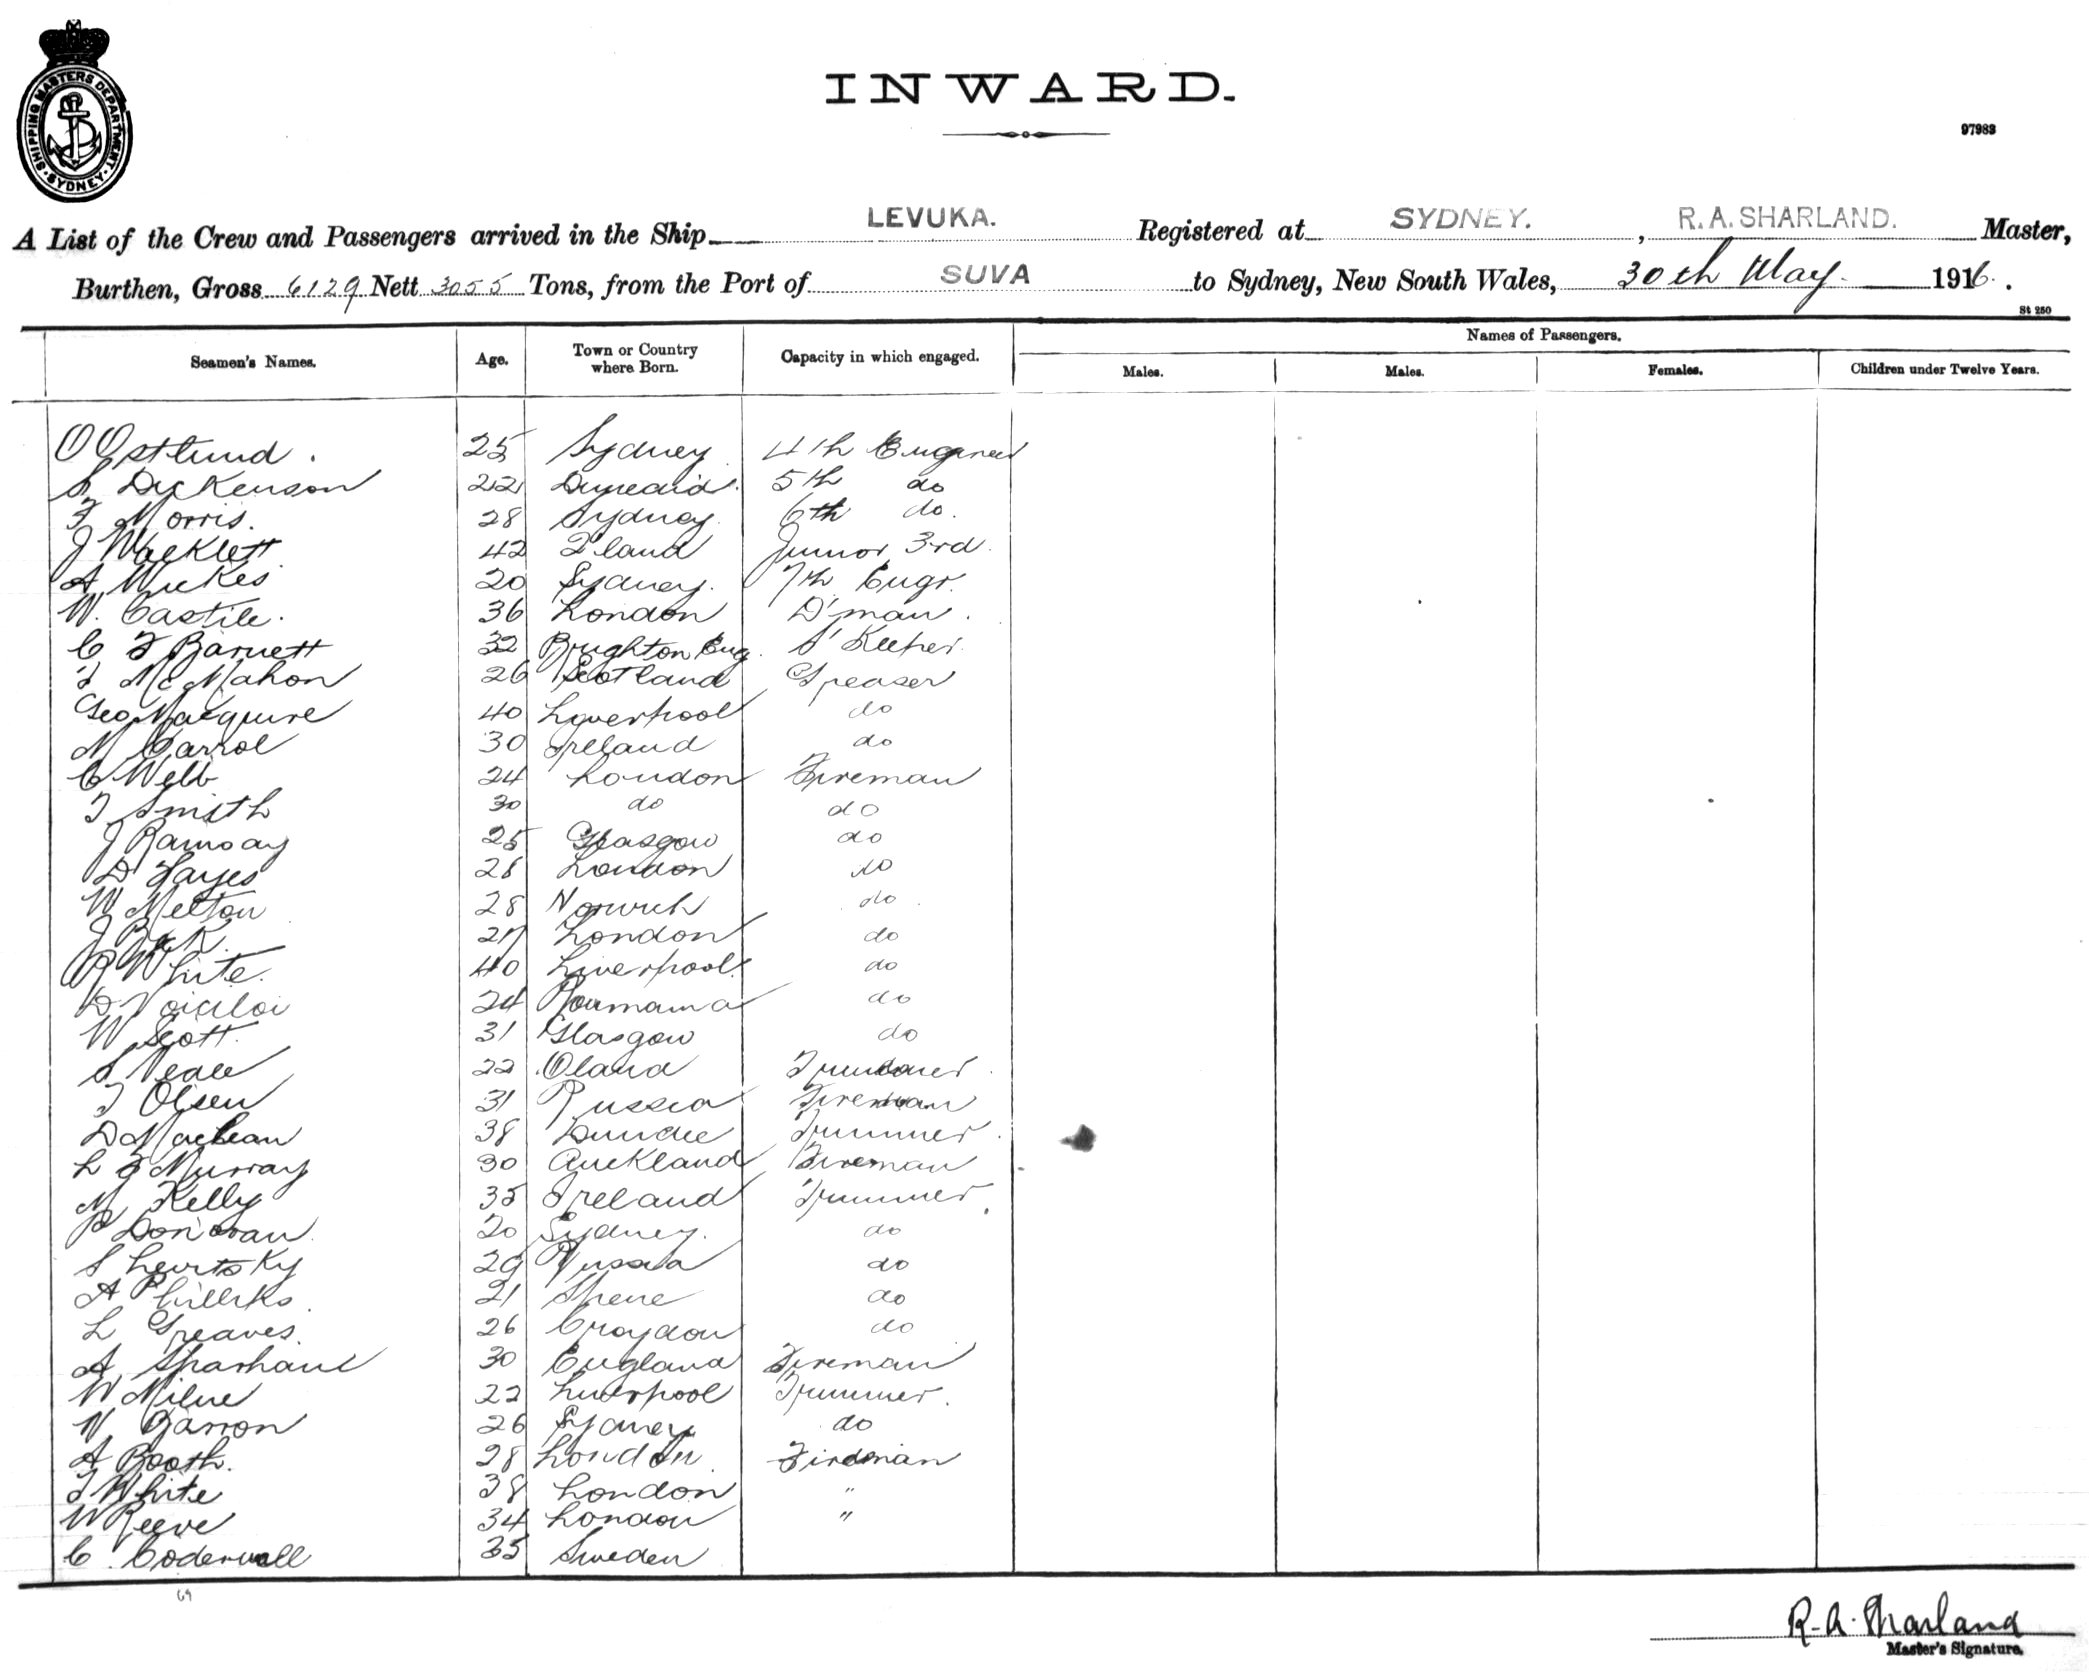 SHIPPING MASTERS DEPARTMENT. SYDNEY.
INWARD.
97983
A List of the Crew and Passengers arrived in the Ship LEVUKA. Registered at SYDNEY. , R. A. SHARLAND. Master,
Burthen, Gross 6129 Nett 3055 Tons, from the Port of SUVA to Sydney, New South Wales, 30th May 1916.
St 250
Seamen's Names. Age. Town or Country where Born. Capacity in which engaged. Names of Passengers.
Males. Males. Females. Children under Twelve Years.
O Ostlund. 25 Sydney 4th Engineer
S Dickenson 22 Dunedid. 5th do
F Morris. 28 Sydney 6th do.
J Wacklett 42 Q'land Junior 3rd.
A Wickes 20 Sydney. 7th Engr.
W. Castile. 36 London D'man.
C F Barnett 32 Brighton Eng. S' Keeper
McMahon 26 Scotland Greaser
Geo Macquire 40 Liverpool do
N Carrol 30 Ireland do
C Webb 24 London Fireman
T Smith 30 do do
J Ramsay 25 Glasgow do
D Hayes 28 London do
W Melton 28 Norwich do
J 27 London do
R White. 40 Liverpool. do
D 24 Roumania do
W Scott. 31 Glasgow do
S Neale 22 Oland Trimmer
T Olsen 31 Russia Fireman
D MacLean 38 Dundee Trimmer.
L F Murray 30 Auckland Fireman
M Kelly 35 Ireland Trimmer.
P Donovan 20 Sydney. do
S Levitsky 29 Russia do
A 21 do
L Greaves. 26 Croydon do
A 30 England Fireman
W Milne 22 Liverpool Trimmer.
N Barron 26 Sydney do
A Booth. 28 London. Fireman
T White 38 London "
W Reeve 34 London "
C. 35 Sweden
69
R. A. Sharland
Master's Signature.